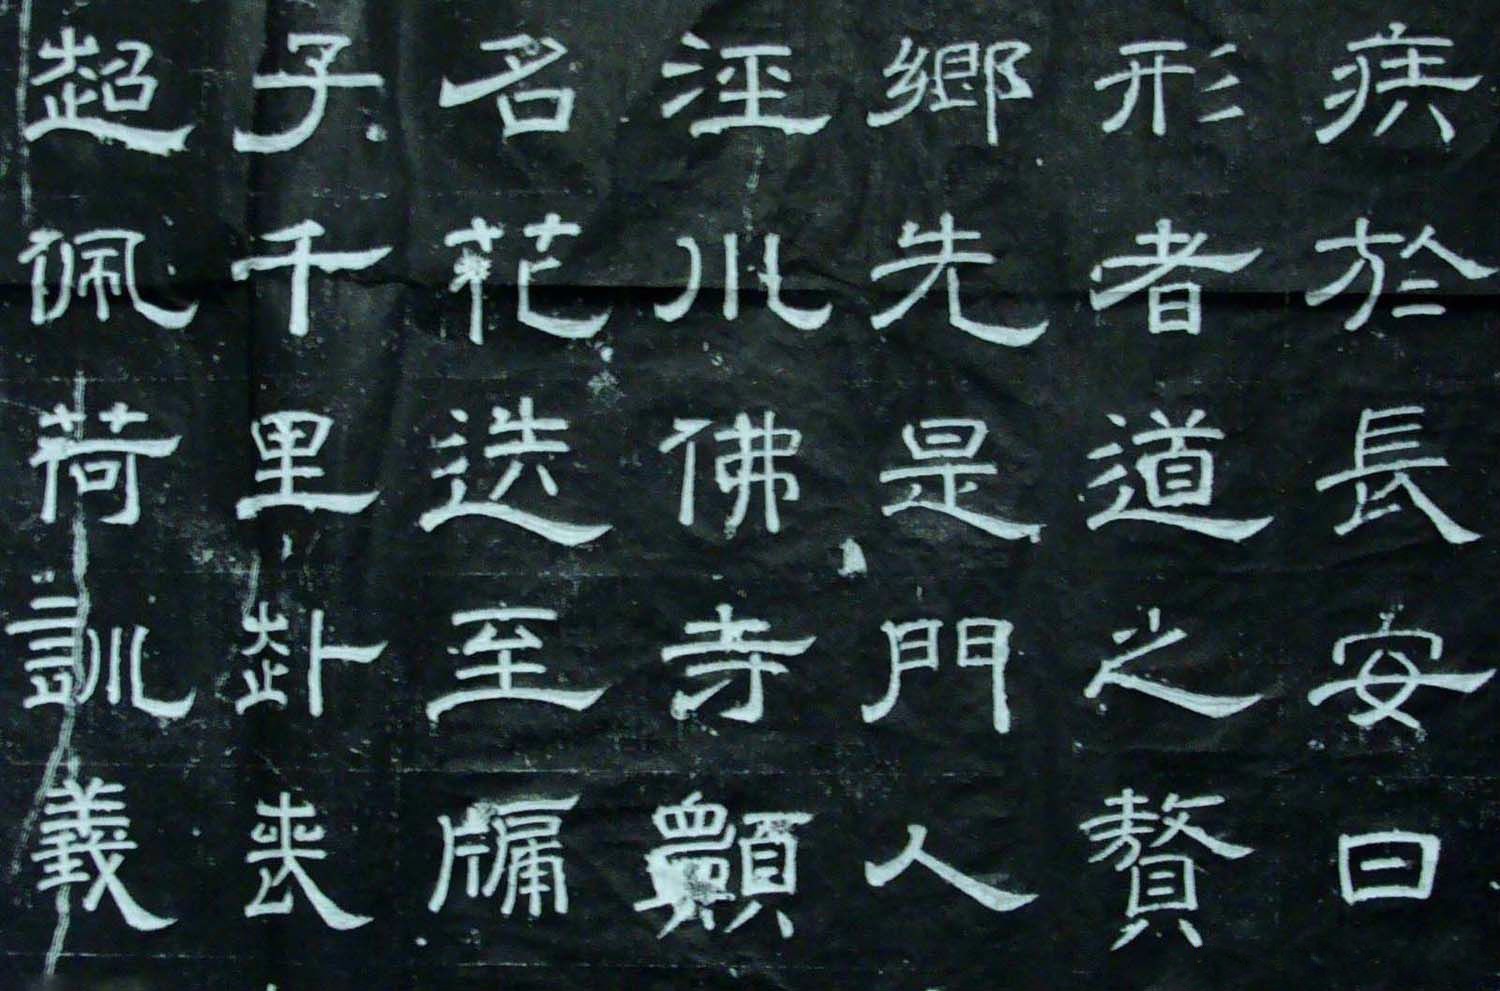 疾於長安曰
形者道之贅
鄉先是門人
涇川佛寺
名花至牖
子千里赴喪
超佩荷訓義